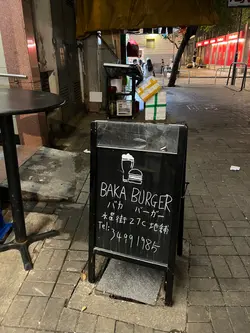 BAKA BURGER
バカ バーガー
永星街27C地舖
Tel: 34991985